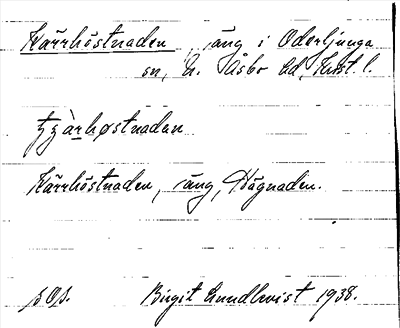 Kärrhöstnaden, äng i Oderljunga
sn, N. Åsbo hd, Krist. l.
Kärrhöstnaden, äng, Hägnaden.
Birgit Lundkvist 1938.